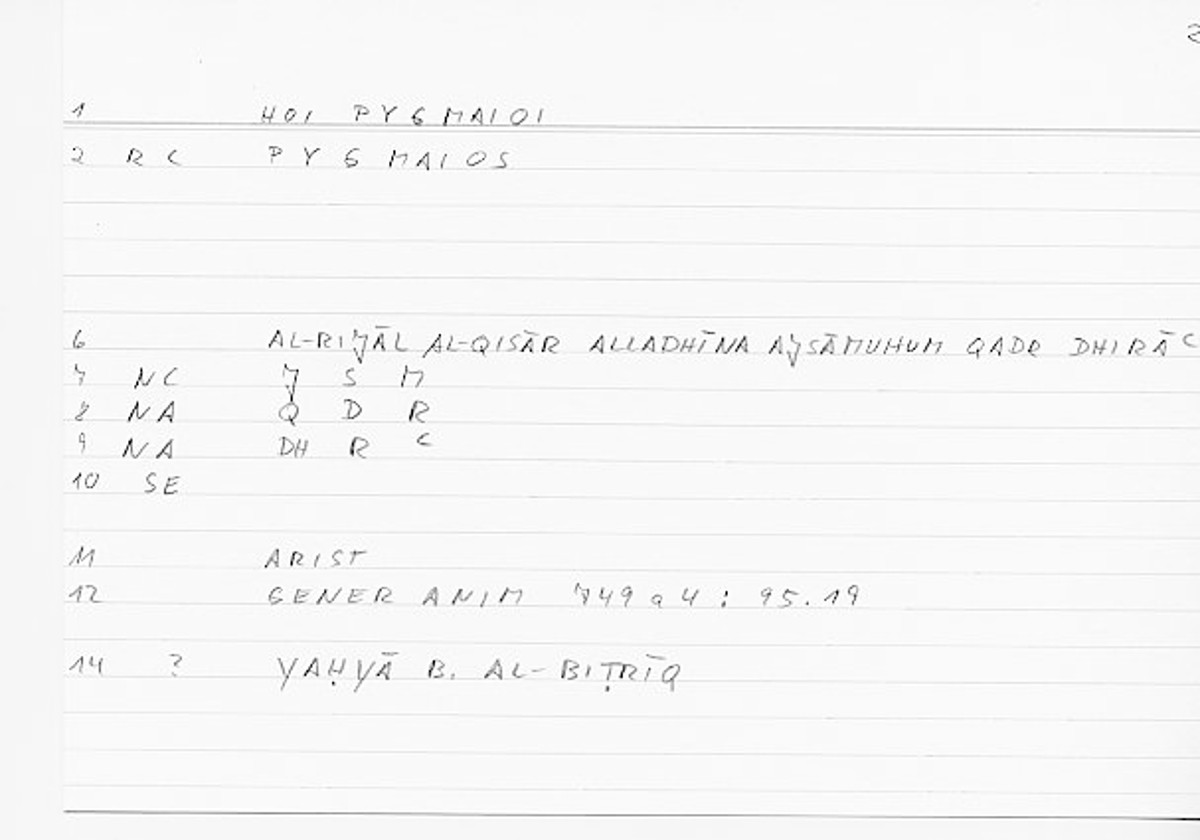 2
1 HOI PYGMAIOI
2 RC PYGMAIOS
6 AL-RIJĀL AL-QISĀR ALLADHĪNA AJSĀMUHUM QADR DHIRĀʿ
7 NC J S M
8 NA Q D R
9 NA DH R ʿ
10 SE
11 ARIST
12 GENER ANIM 749a4 : 95.19
14 ? YAḤYĀ B. AL-BIṬRĪQ